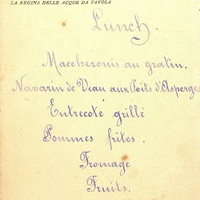 LA REGINA DELLE ACQUE DA TAVOLA
Lunch.
Maccheronis au gratin.
Navarin de Veau aux Poits d'Asperges
Entrecote grillé
Pommes frites.
Fromage
Fruits.